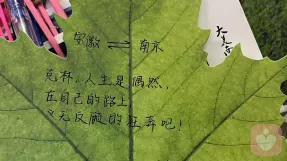 安徽 ⇌ 南京
克林、人生是偶然,
在自己的路上,
义无反顾的狂奔吧!